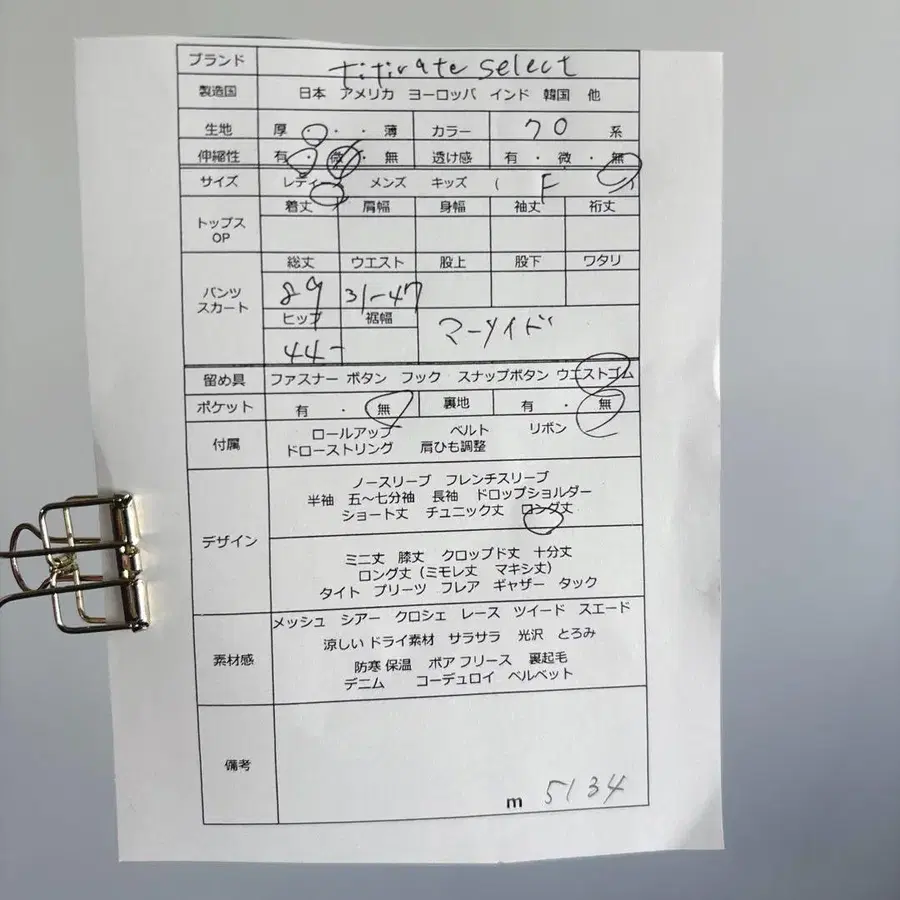 ブランド titivate select
製造国 日本 アメリカ ヨーロッパ インド 韓国 他
生地 厚・・・薄 カラー クロ 系
伸縮性 有・微・無 透け感 有・微・無
サイズ レディース メンズ キッズ ( F )
トップス OP 着丈 肩幅 身幅 袖丈 裄丈
パンツ スカート 総丈 ウエスト 股上 股下 ワタリ
89 31-47
ヒップ 裾幅 マーメイド
44-
留め具 ファスナー ボタン フック スナップボタン ウエストゴム
ポケット 有・無 裏地 有・無
付属 ロールアップ ベルト リボン
ドローストリング 肩ひも調整
デザイン
ノースリーブ フレンチスリーブ
半袖 五〜七分袖 長袖 ドロップショルダー
ショート丈 チュニック丈 ロング丈
ミニ丈 膝丈 クロップド丈 十分丈
ロング丈(ミモレ丈 マキシ丈)
タイト プリーツ フレア ギャザー タック
素材感
メッシュ シアー クロシェ レース ツイード スエード
涼しい ドライ素材 サラサラ 光沢 とろみ
防寒 保温 ボア フリース 裏起毛
デニム コーデュロイ ベルベット
備考
m 5134